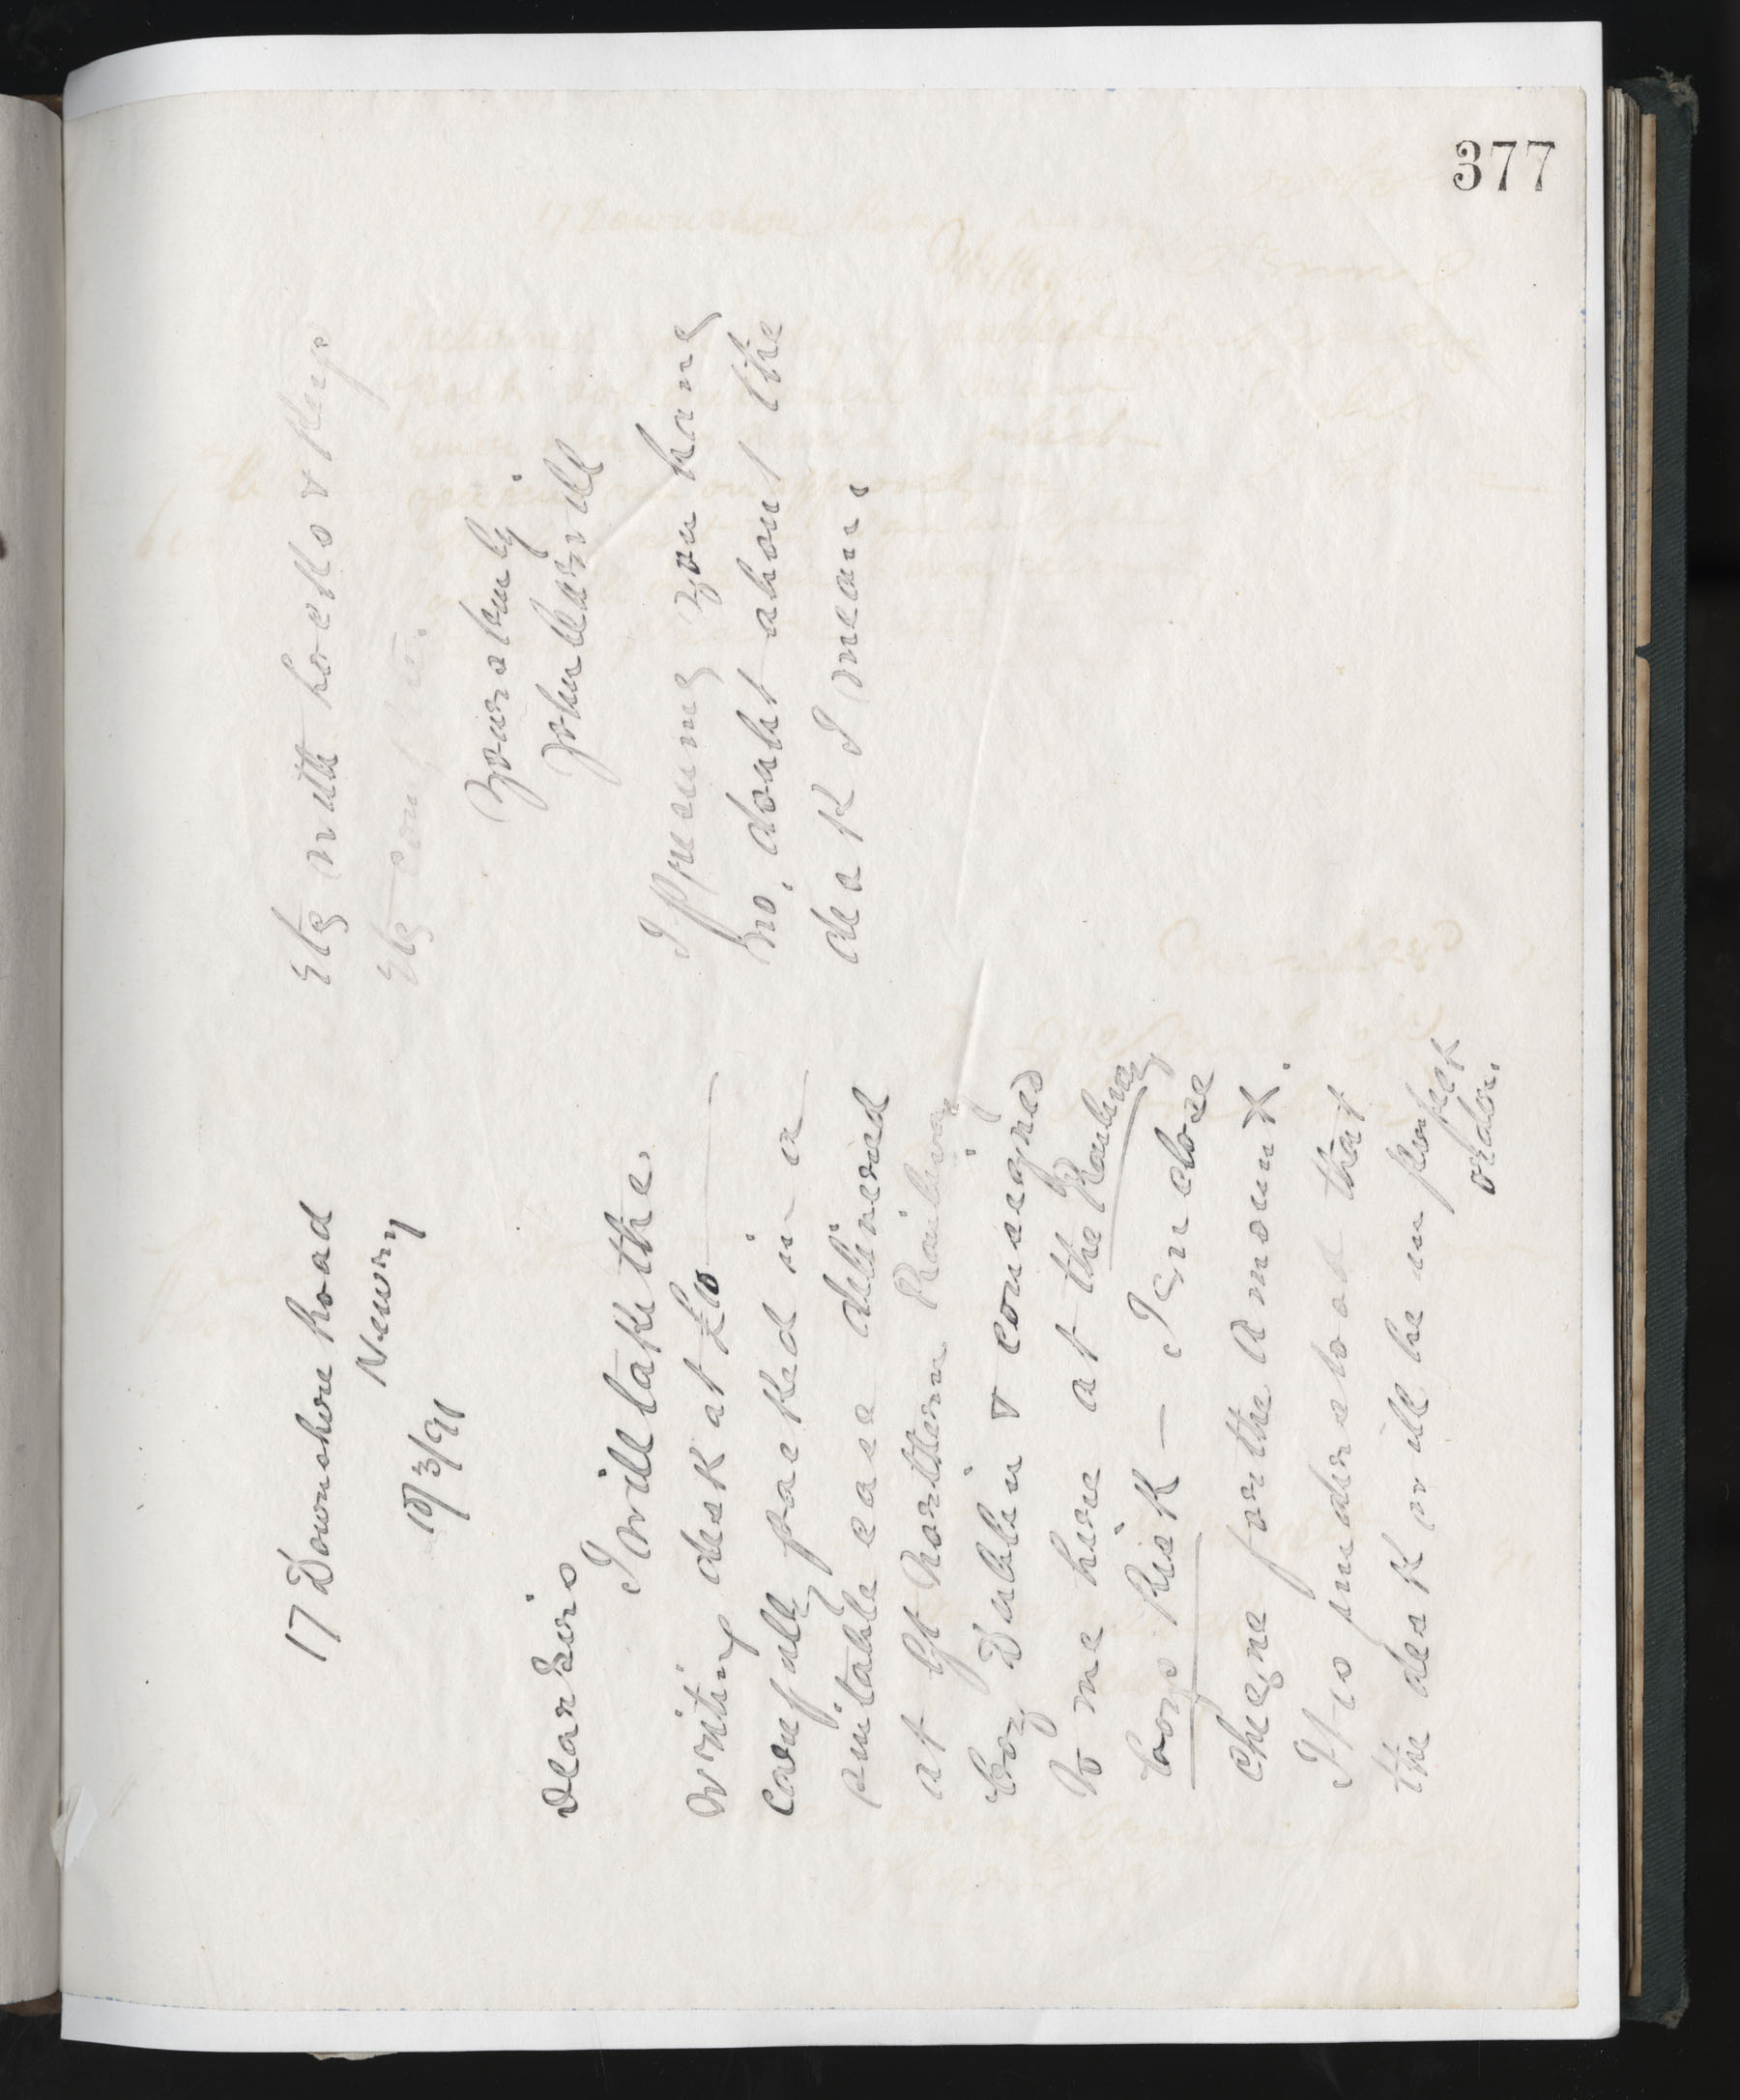 377
17 Downshire Road
Newry
10/3/91
Dear Sirs
I will take the
writing desk at £10
carefully packed in a
suitable case delivered
at Gt Northern Railway
Coy Dublin & consigned
to me here at the Railway
Coys Risk — I enclose
cheque for the Amount.
It is understood that
the desk will be in perfect
order.
etc with & keys
etc complete.
Yours truly
I presume you have
no doubt about the
desk I mean.